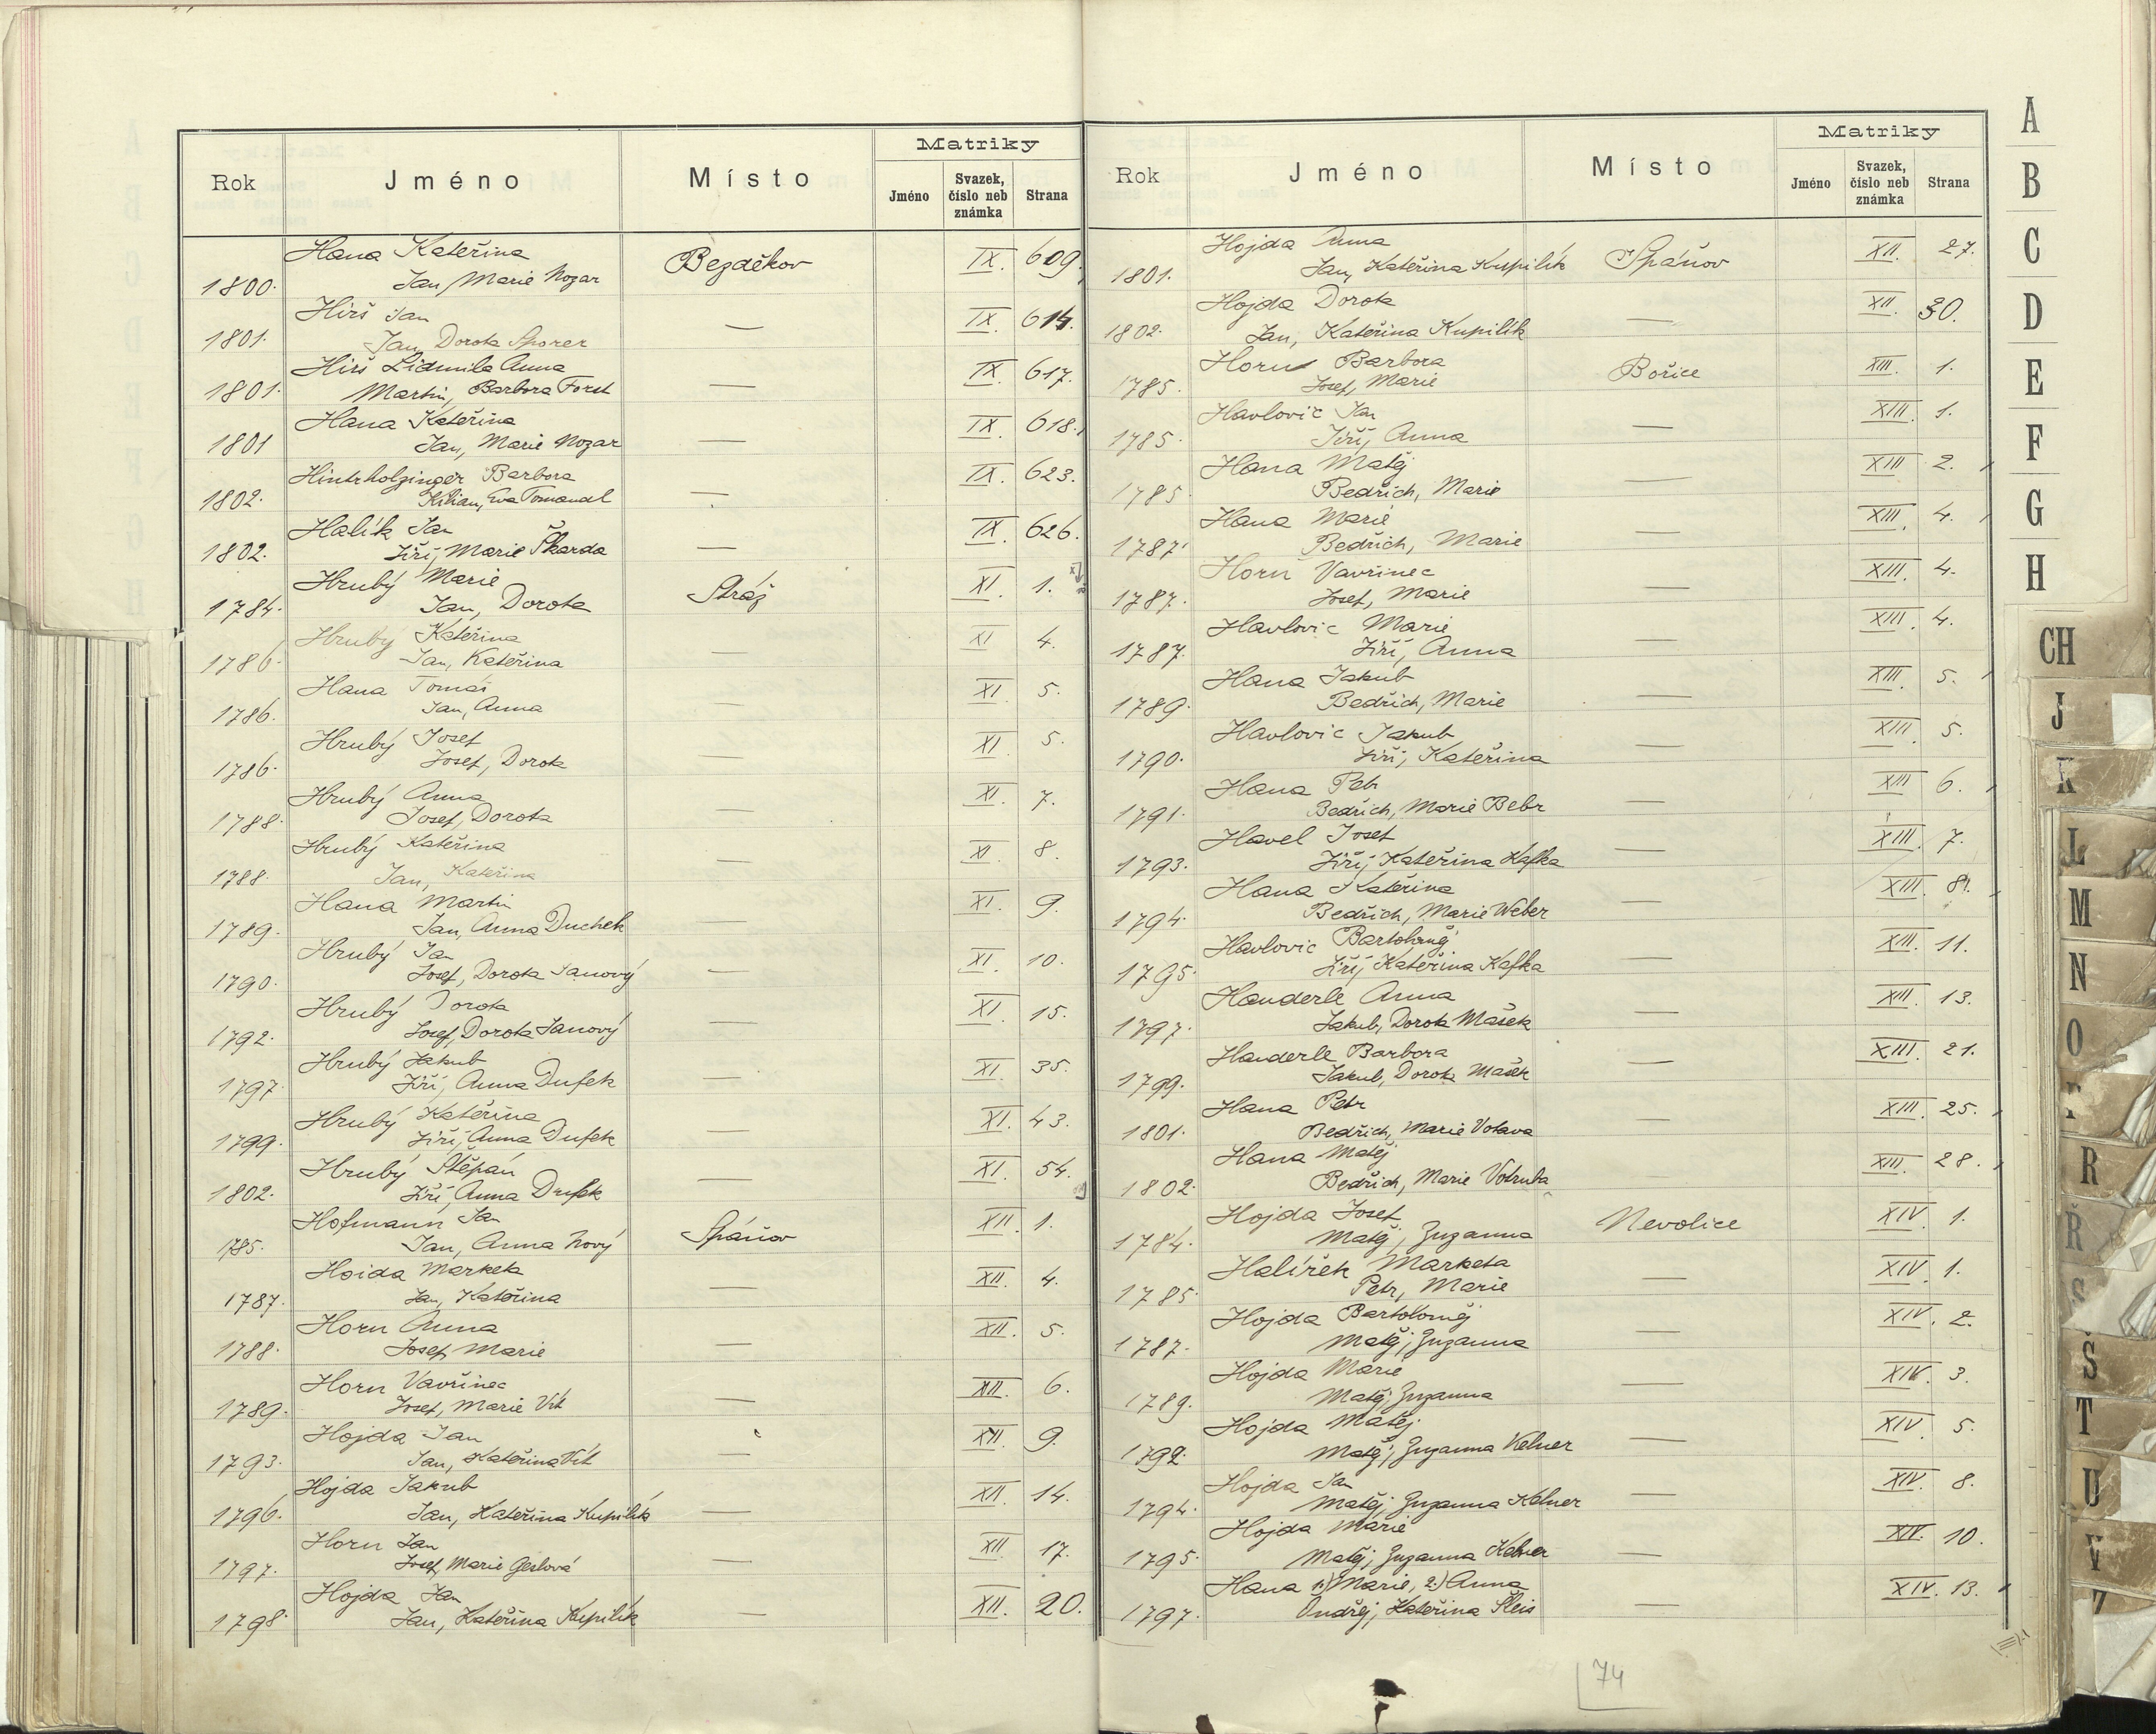 Matriky
Rok Jméno Místo Jméno Svazek, číslo neb známka Strana
Hana Kateřina Bezděkov IX. 609.
1800. Jan, Marie Nozar
Hirš Jan — IX. 614.
1801. Jan, Dorota Sporer
Hirš Lidmila Anna — IX. 617.
1801. Martin, Barbora Forst
Hana Kateřina — IX 618.
1801 Jan, Marie Nozar
Hintrholzinger Barbora — IX. 623.
1802. Kilian, Eva Tomandl
Halík Jan — IX. 626.
1802. Jiří, Marie Škarda
Hrubý Marie Stráž XI. 1.
1784. Jan, Dorota
Hrubý Kateřina — XI 4.
1786. Jan, Kateřina
Hana Tomáš — XI 5.
1786. Jan, Anna
Hrubý Josef — XI 5.
1786. Josef, Dorota
Hrubý Anna — XI 7.
1788. Josef, Dorota
Hrubý Kateřina — XI 8.
1788. Jan, Kateřina
Hana Martin — XI. 9.
1789. Jan, Anna Duchek
Hrubý Jan — XI 10.
1790. Josef, Dorota Janový
Hrubý Dorota — XI 15.
1792. Josef, Dorota Janový
Hrubý Jakub — XI 35.
1797. Jiří, Anna Dufek
Hrubý Kateřina — XI. 43.
1799. Jiří, Anna Dufek
Hrubý Štěpán — XI. 54.
1802. Jiří, Anna Dufek
Hofmann Jan Spáňov XII. 1.
1785. Jan, Anna Nový
Hoida Marketa — XII. 4.
1787. Jan, Kateřina
Horn Anna — XII. 5.
1788. Josef, Marie
Horn Vavřinec — XII. 6.
1789. Josef, Marie Vít
Hojda Jan — XII. 9.
1793. Jan, Kateřina Vít
Hojda Jakub — XII. 14.
1796. Jan, Kateřina Kupilík
Horn Jan — XII 17.
1797. Josef, Marie Geslová
Hojda Jan — XII. 20.
1798. Jan, Kateřina Kupilík
Matriky
Rok Jméno Místo Jméno Svazek, číslo neb známka Strana
Hojda Anna Spáňov XII. 27.
1801. Jan, Kateřina Kupilík
Hojda Dorota — XII. 30.
1802. Jan, Kateřina Kupilík
Horn Barbora Bořice XIII. 1.
1785. Josef, Marie
Havlovic Jan — XIII. 1.
1785. Jiří, Anna
Hana Matěj — XIII 2.
1785. Bedřich, Marie
Hana Marie — XIII. 4.
1787. Bedřich, Marie
Horn Vavřinec — XIII. 4.
1787. Josef, Marie
Havlovic Marie — XIII. 4.
1787. Jiří, Anna
Hana Jakub — XIII. 5.
1789. Bedřich, Marie
Havlovic Jakub — XIII 5.
1790. Jiří, Kateřina
Hana Petr — XIII 6.
1791. Bedřich, Marie Bebr
Havel Josef — XIII. 7.
1793. Jiří, Kateřina Kafka
Hana Kateřina — XIII. 8.
1794. Bedřich, Marie Weber
Havlovic Bartoloměj — XIII. 11.
1795. Jiří, Kateřina Kafka
Handerle Anna — XIII. 13.
1797. Jakub, Dorota Mašek
Handerle Barbora — XIII. 21.
1799. Jakub, Dorota Mašek
Hana Petr — XIII. 25.
1801. Bedřich, Marie Votava
Hana Matěj — XIII. 28.
1802. Bedřich, Marie Votruba
Hojda Josef Nevolice XIV. 1.
1784. Matěj, Zuzanna
Halířek Marketa — XIV. 1.
1785. Petr, Marie
Hojda Bartoloměj — XIV. 2.
1787. Matěj, Zuzanna
Hojda Marie — XIV. 3.
1789. Matěj, Zuzanna
Hojda Matěj — XIV. 5.
1792. Matěj, Zuzanna Kelner
Hojda Jan — XIV. 8.
1794. Matěj, Zuzanna Kelner
Hojda Marie — XIV. 10.
1795. Matěj, Zuzanna Kelner
Hana 1.) Marie, 2.) Anna — XIV. 13.
1797. Ondřej, Kateřina Šleis
74
A
B
C
D
E
F
G
H
CH
J
K
L
M
N
O
P
R
Ř
S
Š
T
U
V
Z